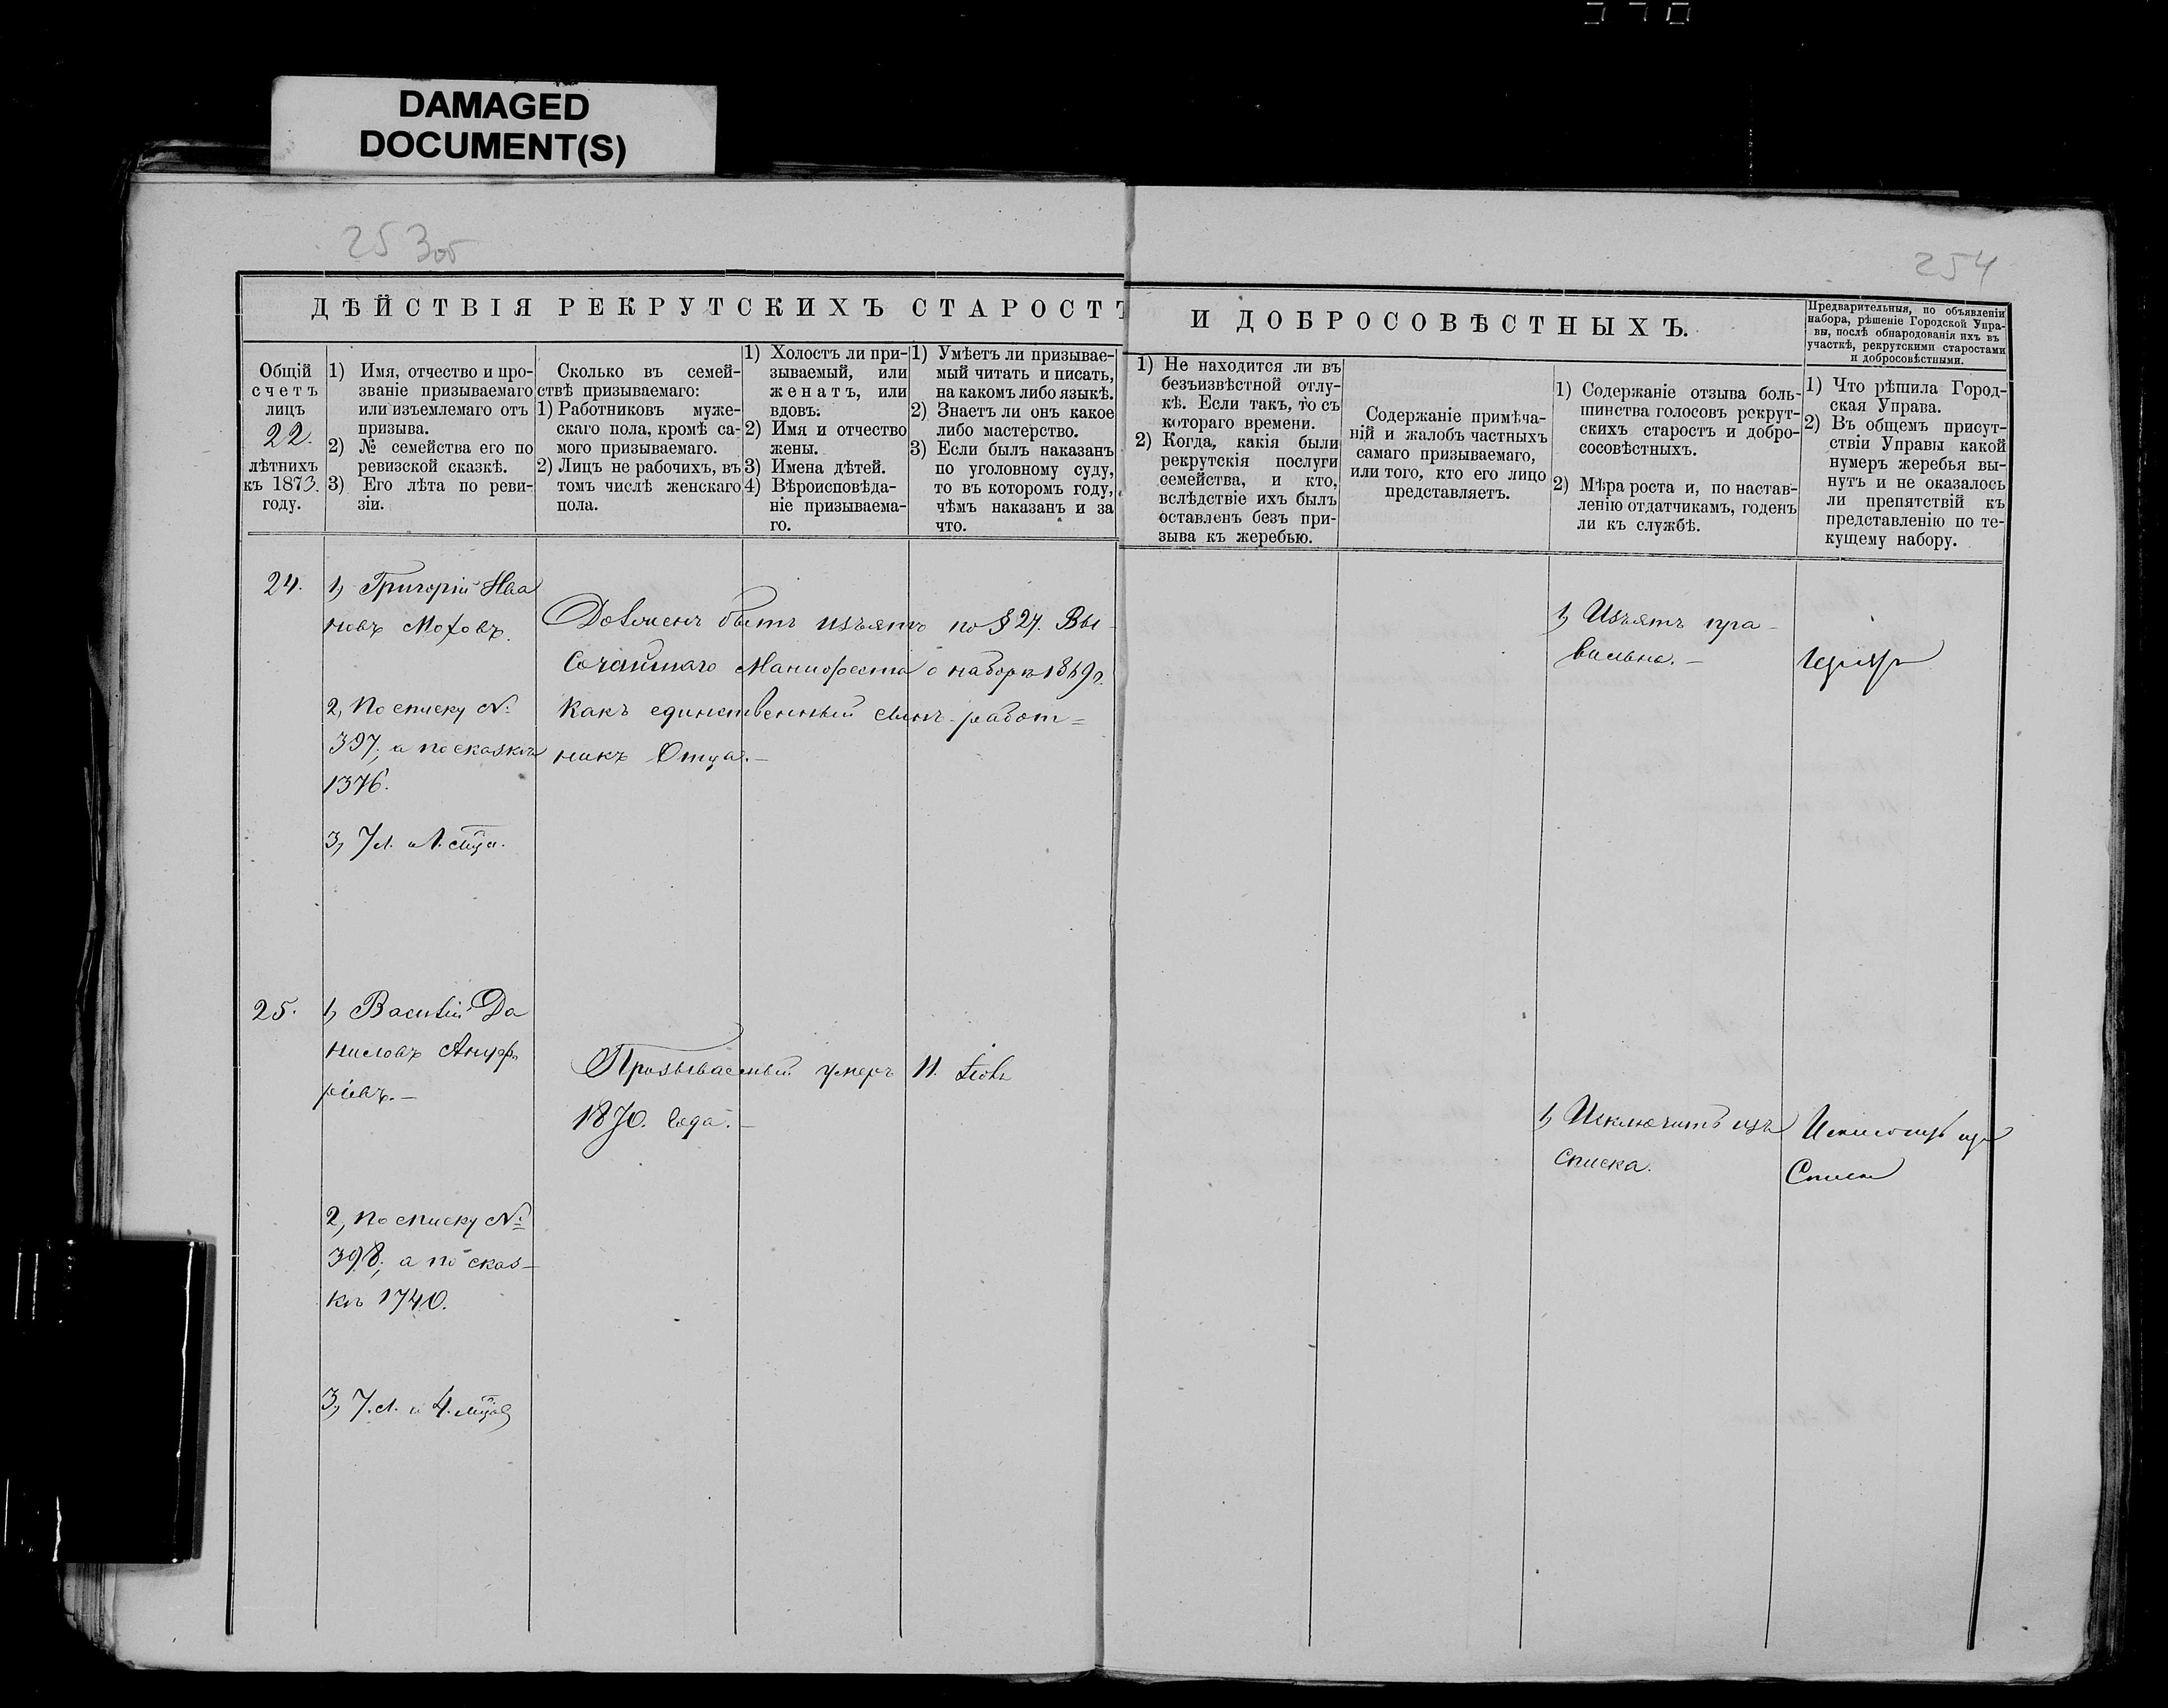 DAMAGED
DOCUMENT(S)
253об
254
ДѢЙСТВІЯ РЕКРУТСКИХЪ СТАРОСТЪ
И ДОБРОСОВѢСТНЫХЪ.
Предварительныя, по объявленіи
набора, рѣшеніе Городской Упра-
вы, послѣ обнародованія ихъ въ
участкѣ, рекрутскими старостами
и добросовѣстными.
Общій
счетъ
лицъ
22.
лѣтнихъ
къ 1873.
году.
1) Имя, отчество и про-
званіе призываемаго
или изъемлемаго отъ
призыва.
2) № семейства его по
ревизской сказкѣ.
3) Его лѣта по реви-
зіи.
Сколько въ семей-
ствѣ призываемаго:
1) Работниковъ муже-
скаго пола, кромѣ са-
мого призываемаго.
2) Лицъ не рабочихъ, въ
томъ числѣ женскаго
пола.
1) Холостъ ли при-
зываемый, или
женатъ, или
вдовъ.
2) Имя и отчество
жены.
3) Имена дѣтей.
4) Вѣроисповѣда-
ніе призываема-
го.
1) Умѣетъ ли призывае-
мый читать и писать,
на какомъ либо языкѣ.
2) Знаетъ ли онъ какое
либо мастерство.
3) Если былъ наказанъ
по уголовному суду,
то въ которомъ году,
чѣмъ наказанъ и за
что.
1) Не находится ли въ
безъизвѣстной отлу-
кѣ. Если такъ, то съ
котораго времени.
2) Когда, какія были
рекрутскія послуги
семейства, и кто,
вслѣдствіе ихъ былъ
оставленъ безъ при-
зыва къ жеребью.
Содержаніе примѣча-
ній и жалобъ частныхъ
самаго призываемаго,
или того, кто его лицо
представляетъ.
1) Содержаніе отзыва боль-
шинства голосовъ рекрут-
скихъ старостъ и добро-
сосовѣстныхъ.
2) Мѣра роста и, по настав-
ленію отдатчикамъ, годенъ
ли къ службѣ.
1) Что рѣшила Город-
ская Управа.
2) Въ общемъ присут-
ствіи Управы какой
нумеръ жеребья вы-
нутъ и не оказалось
ли препятствій къ
представленію по те-
кущему набору.
24.
1, Григорій Ива
новъ Моховъ.
2, По списку №
397, а по сказкѣ
1376.
3, 7 л. и 1. мца.
Долженъ быть изъятъ по § 24. Вы-
сочайшаго Манифеста о наборѣ 1869 г.
какъ единственный сынъ-работ=
никъ Отца.—
1, Изъятъ пра-
вильно.—
25.
1, Василій Да
ниловъ Ануф
ріевъ.—
2, По списку №
398, а по сказ-
кѣ 1740.
3, 7. л. и 4. мцов
Призываемый умеръ 11.
1870. Года.—
1, Исключить изъ
списка.
Исключить изъ
Списка